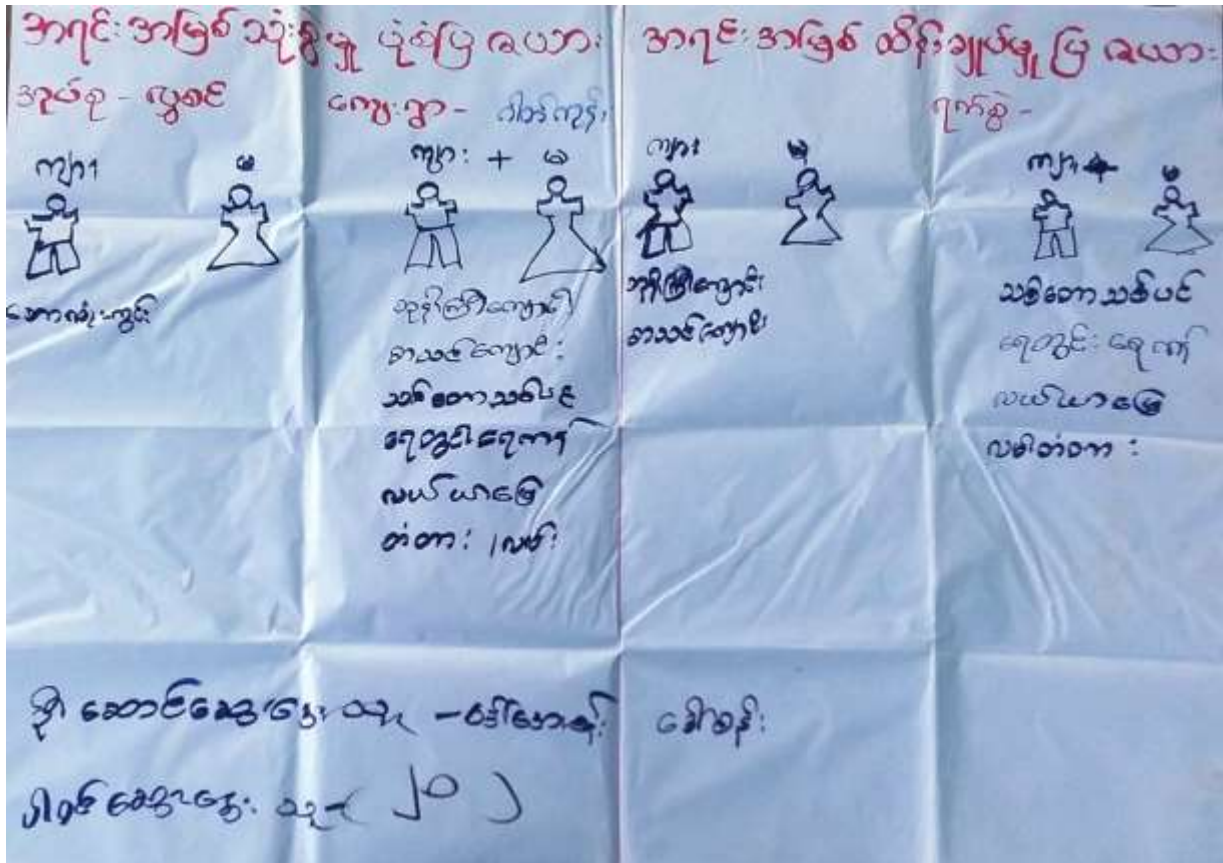 အရင်းအမြစ် သုံးစွဲမှု ပုံစံပြ ဇယား
အုပ်စု - လွှစင် ကျေးရွာ - ဂါတ်ကုန်း
ကျား မ ကျား + မ
ဘောလုံးကွင်း
ဘုန်းကြီးကျောင်း
စာသင်ကျောင်း
သစ်တောသစ်ပင်
ရေတွင်း ရေကန်
လယ်ယာမြေ
တံတား / လမ်း
အရင်းအမြစ် ထိန်းချုပ်မှု ပြ ဇယား
ရက်စွဲ -
ကျား မ ကျား + မ
ဘုန်းကြီးကျောင်း
စာသင်ကျောင်း
သစ်တောသစ်ပင်
ရေတွင်း ရေကန်
လယ်ယာမြေ
လမ်းတံတား
ဦးဆောင်ဆွေးနွေးသူ -
ပါဝင်ဆွေးနွေးသူ - ( ၂၀ )